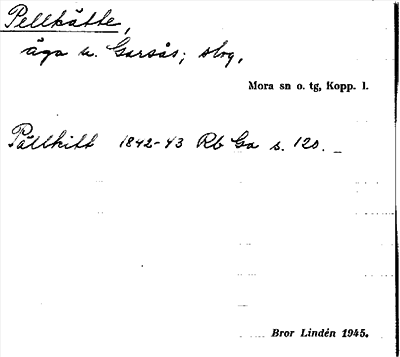 Pellkätte,
äga u. Garsås; skog.
Mora sn o. tg, Kopp. l.
Pällkitt 1842-43 Rb Ga s. 120.
Bror Lindén 1945.